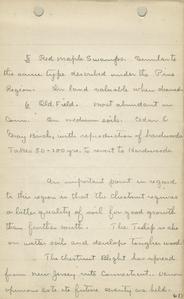 5 Red Maple Swamps. Similar to
the same type described under the Pine
Region. In land valuable when drained
6 Old Field. Most abundant in
Conn. On medium soils. Cedar &
Gray Birch, with reproduction of hardwoods
Takes 50-100 yrs. to revert to Hardwoods
An important point in regard
to this region is that the chestnut requires
a better quality of soil for good growth
than further south. The Tulip is also
on water soils and develops tougher wood.
The Chestnut Blight has spread
from New Jersey into Connecticut. Various
opinions as to its future severity are held.